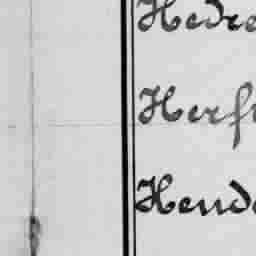 Hedre
Herf
Hend